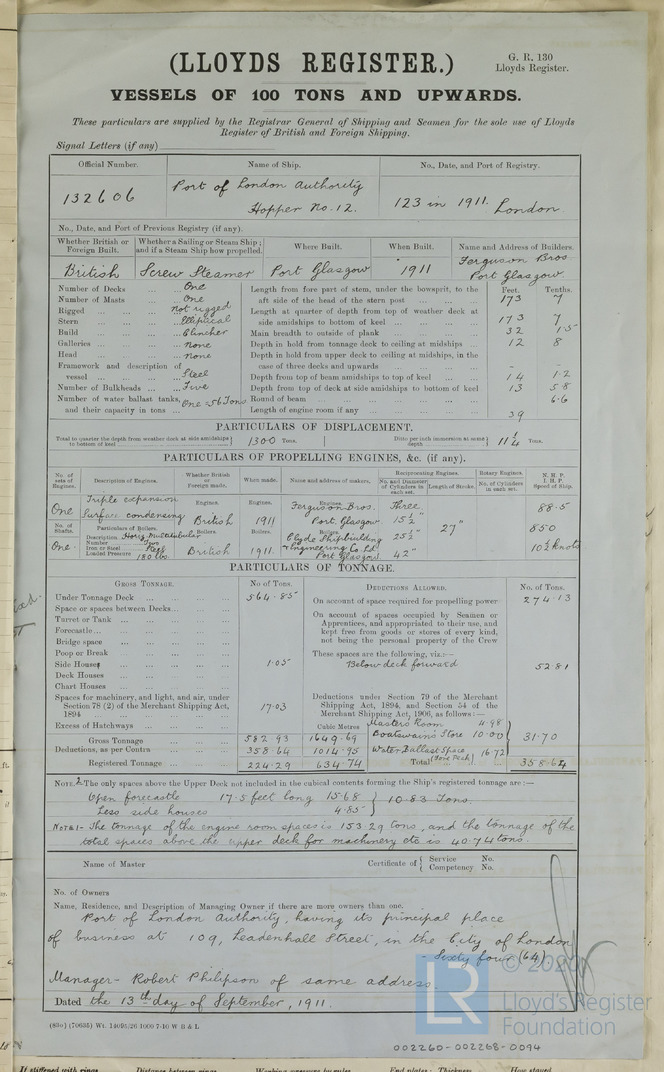 (LLOYDS REGISTER.)
G. R. 130
Lloyds Register.
VESSELS OF 100 TONS AND UPWARDS.
These particulars are supplied by the Registrar General of Shipping and Seamen for the sole use of Lloyds
Register of British and Foreign Shipping.
Signal Letters (if any)
Official Number. Name of Ship. No., Date, and Port of Registry.
132606 Port of London Authority Hopper No. 12. 123 in 1911. London
No., Date, and Port of Previous Registry (if any).
Whether British or Foreign Built. Whether a Sailing or Steam Ship; and if a Steam Ship how propelled. Where Built. When Built. Name and Address of Builders.
British Screw Steamer Port Glasgow 1911 Ferguson Bros Port Glasgow.
Feet. Tenths.
Number of Decks ... ... One
Number of Masts ... ... One
Rigged ... ... Not rigged
Stern ... ... Elliptical
Build ... ... Clincher
Galleries ... ... None
Head ... ... None
Framework and description of vessel ... ... Steel
Number of Bulkheads ... Five
Number of water ballast tanks, and their capacity in tons ... One = 56 Tons
Length from fore part of stem, under the bowsprit, to the aft side of the head of the stern post ... 173 7
Length at quarter of depth from top of weather deck at side amidships to bottom of keel ... 173 7
Main breadth to outside of plank ... 32 1.5
Depth in hold from tonnage deck to ceiling at midships ... 12 8
Depth in hold from upper deck to ceiling at midships, in the case of three decks and upwards ... - -
Depth from top of beam amidships to top of keel ... 14 1.2
Depth from top of deck at side amidships to bottom of keel 13 5.8
Round of beam ... 6.6
Length of engine room if any ... 39
PARTICULARS OF DISPLACEMENT.
Total to quarter the depth from weather deck at side amidships to bottom of keel 1300 Tons. Ditto per inch immersion at same depth 11 1/4 Tons.
PARTICULARS OF PROPELLING ENGINES, &c. (if any).
No. of sets of Engines. Description of Engines. Whether British or Foreign made. When made. Name and address of makers. Reciprocating Engines. No. and Diameter of Cylinders in each set. Length of Stroke. Rotary Engines. No. of Cylinders in each set. N. H. P. I. H. P. Speed of Ship.
One Triple expansion Surface condensing Engines. British Engines. 1911 Engines. Ferguson Bros. Port Glasgow. Three 15½" 25½" 42" 27" 88.5 850 10½ knots
No. of Shafts. One Particulars of Boilers. Description Horiz. Multitubular Number Two Iron or Steel Steel Loaded Pressure 180 lbs. Boilers. British Boilers. 1911. Boilers. Clyde Shipbuilding & Engineering Co. Ld Port Glasgow
PARTICULARS OF TONNAGE.
GROSS TONNAGE. No of Tons. DEDUCTIONS ALLOWED. No. of Tons.
Under Tonnage Deck ... 564.85
Space or spaces between Decks ...
Turret or Tank ...
Forecastle ...
Bridge space ...
Poop or Break ...
Side Houses ... 1.05
Deck Houses ...
Chart Houses ...
Spaces for machinery, and light, and air, under Section 78 (2) of the Merchant Shipping Act, 1894 ... 17.03
Excess of Hatchways ...
Cubic Metres
Gross Tonnage 582.93 1649.69
Deductions, as per Contra 358.64 1014.95
Registered Tonnage 224.29 634.74
On account of space required for propelling power 274.13
On account of spaces occupied by Seamen or Apprentices, and appropriated to their use, and kept free from goods or stores of every kind, not being the personal property of the Crew
These spaces are the following, viz.:—
Below deck forward 52.81
Deductions under Section 79 of the Merchant Shipping Act, 1894, and Section 54 of the Merchant Shipping Act, 1906, as follows:—
Master's Room 4.98
Boatswain's Store 10.00
Water Ballast Space (fore Peak) 16.72 } 31.70
Total 358.64
NOTE 2. The only spaces above the Upper Deck not included in the cubical contents forming the Ship's registered tonnage are:—
Open forecastle 17.5 feet long 15.68
Less side houses 4.85 } 10.83 Tons.
NOTE 1- The tonnage of the engine room spaces is 153.29 tons, and the tonnage of the
total spaces above the upper deck for machinery etc is 40.74 tons.
Name of Master Certificate of { Service No. Competency No.
No. of Owners
Name, Residence, and Description of Managing Owner if there are more owners than one.
Port of London Authority, having its principal place
of business at 109, Leadenhall Street, in the City of London
- Sixty four (64)
Manager - Robert Philipson of same address.
Dated the 13th day of September, 1911.
© 2020
Lloyd's Register
Foundation
LR
002260-002268-0094
If stiffened with rings Distance between rings Working pressure by rules End plates: Thickness How stayed